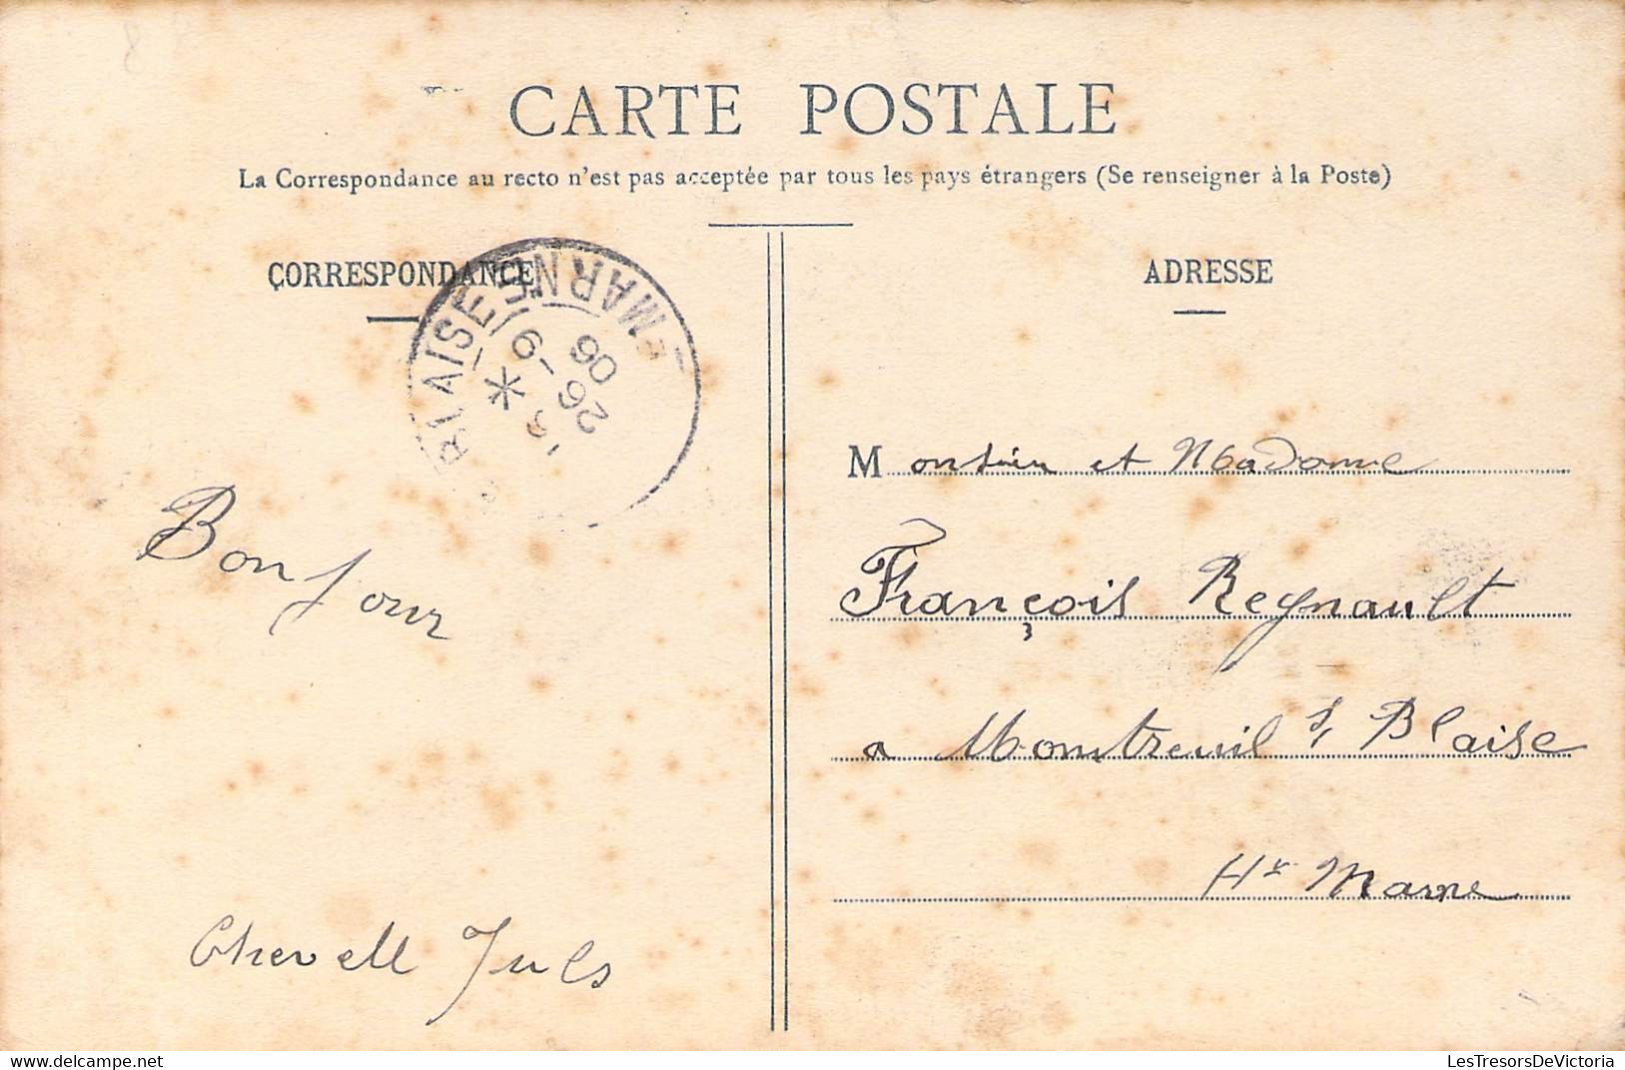 CARTE POSTALE
La Correspondance au recto n'est pas acceptée par tous les pays étrangers (Se renseigner à la Poste)
CORRESPONDANCE
ADRESSE
BLAISE
MARNE
26 -9
06
Bonjour
Chevell Juls
Monsieur et Madame
François Regnault
a Montreuil s/ Blaise
Hte Marne
LesTresorsDeVictoria